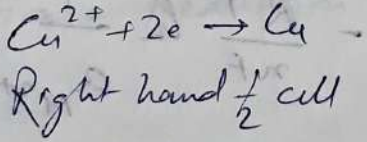 Cu²⁺ + 2e → Cu.
Right hand ½ cell